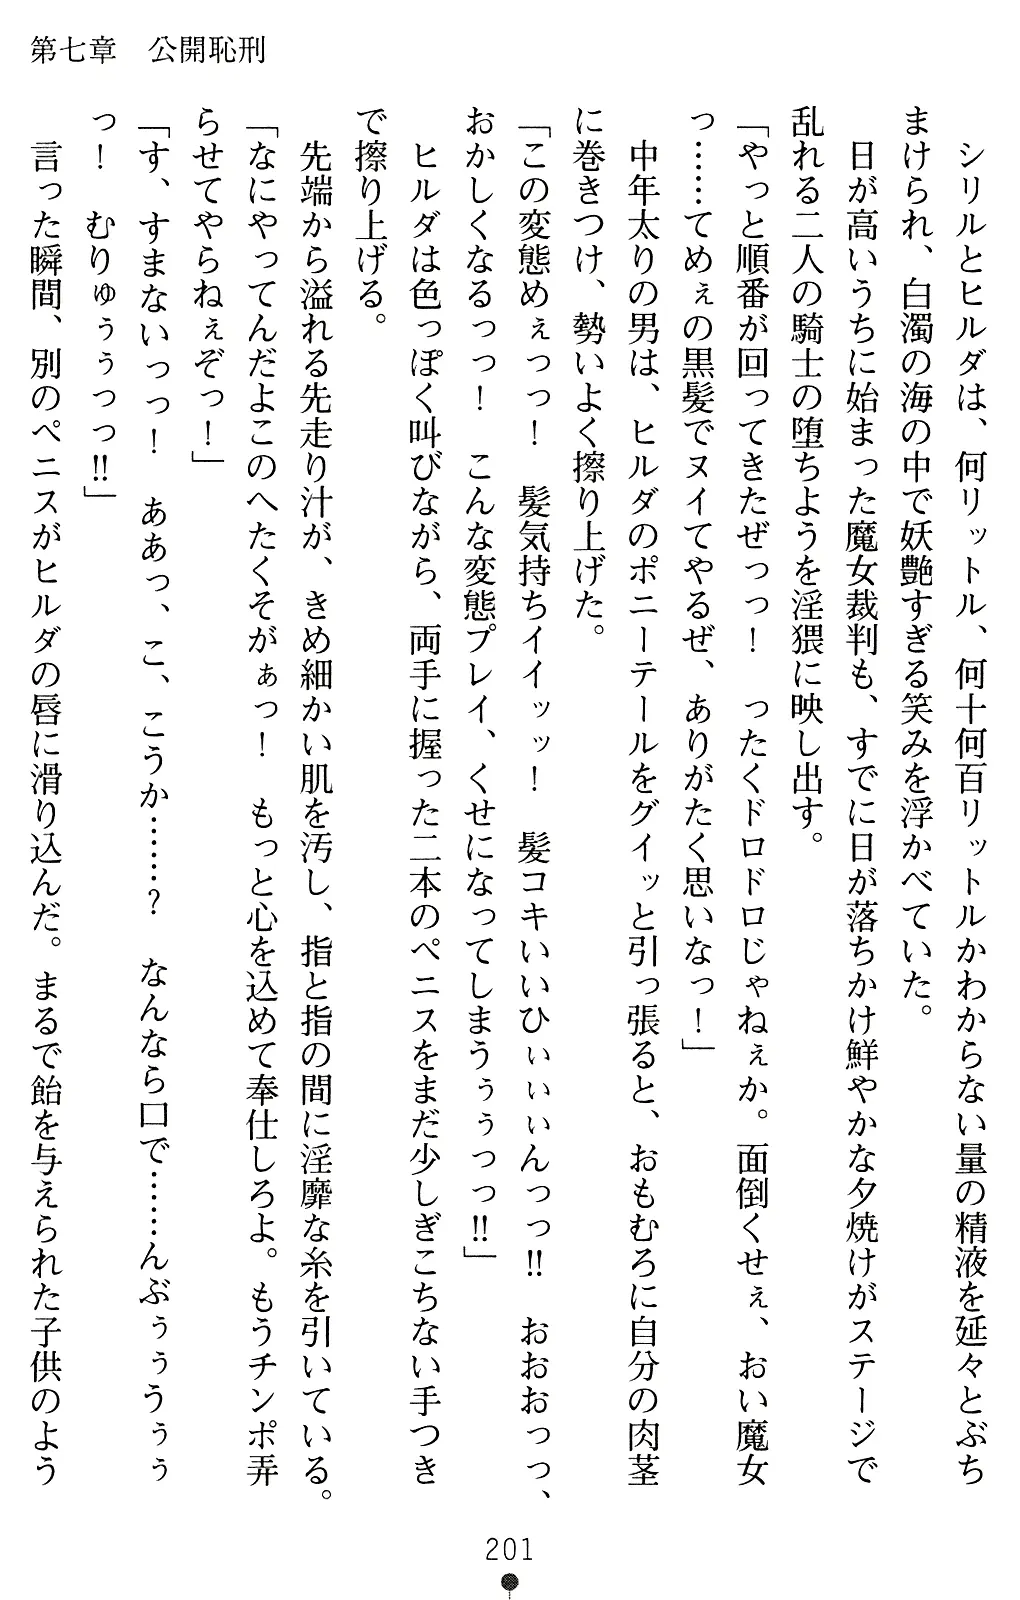 第七章　公開恥刑
　シリルとヒルダは、何リットル、何十何百リットルかわからない量の精液を延々とぶち
まけられ、白濁の海の中で妖艶すぎる笑みを浮かべていた。
　日が高いうちに始まった魔女裁判も、すでに日が落ちかけ鮮やかな夕焼けがステージで
乱れる二人の騎士の堕ちようを淫猥に映し出す。
「やっと順番が回ってきたぜっっ！　ったくドロドロじゃねぇか。面倒くせぇ、おい魔女
っ……てめぇの黒髪でヌイてやるぜ、ありがたく思いなっ！」
　中年太りの男は、ヒルダのポニーテールをグイッと引っ張ると、おもむろに自分の肉茎
に巻きつけ、勢いよく擦り上げた。
「この変態めぇっっ！　髪気持ちイイッッ！　髪コキいいひぃぃぃんっっ!!　おおおっっ、
おかしくなるっっ！　こんな変態プレイ、くせになってしまうぅぅっっ!!」
　ヒルダは色っぽく叫びながら、両手に握った二本のペニスをまだ少しぎこちない手つき
で擦り上げる。
　先端から溢れる先走り汁が、きめ細かい肌を汚し、指と指の間に淫靡な糸を引いている。
「なにやってんだよこのへたくそがぁっ！　もっと心を込めて奉仕しろよ。もうチンポ弄
らせてやらねぇぞっ！」
「す、すまないっっ！　ああっ、こ、こうか……？　なんなら口で……んぶぅぅうぅぅ
っ！　むりゅぅぅっっ!!」
　言った瞬間、別のペニスがヒルダの唇に滑り込んだ。まるで飴を与えられた子供のよう
201